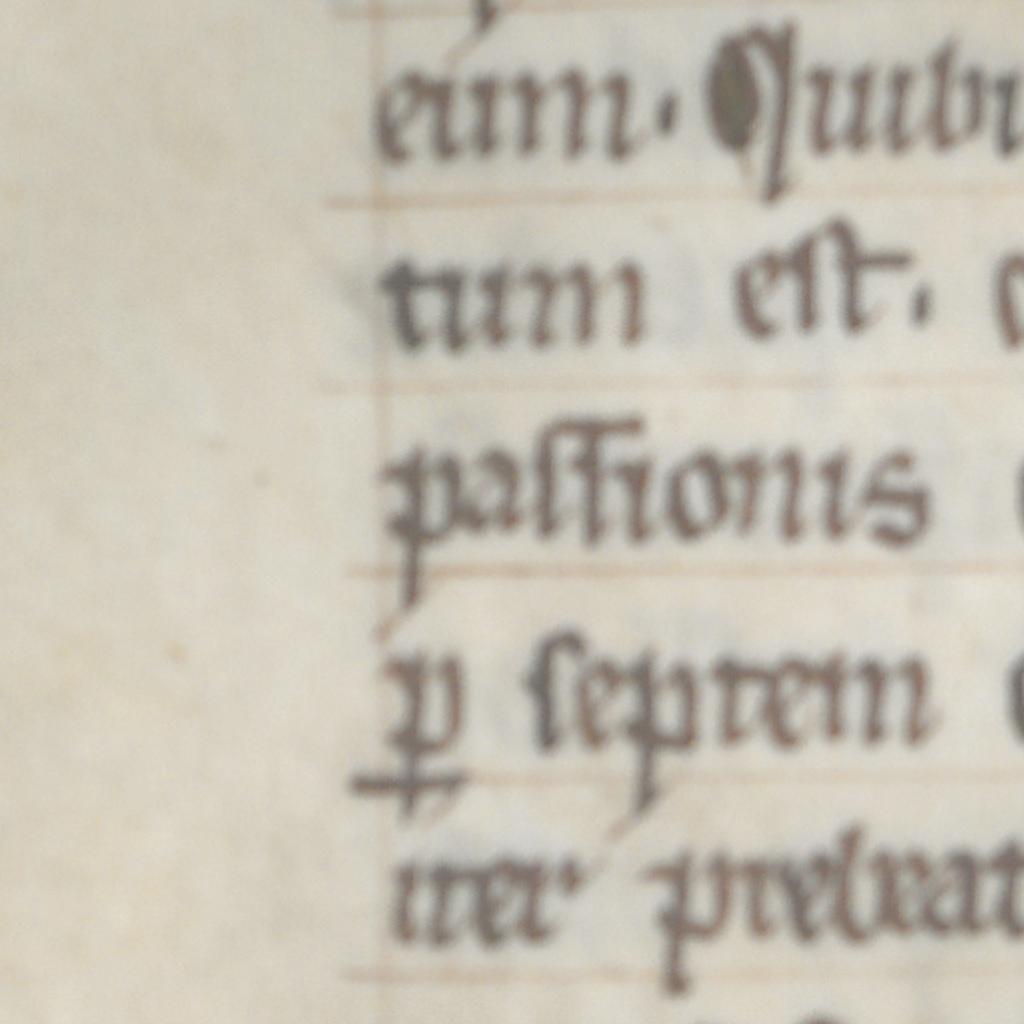 eum. Quibu
tum est.
passionis
ꝑ septem
iter prebeat